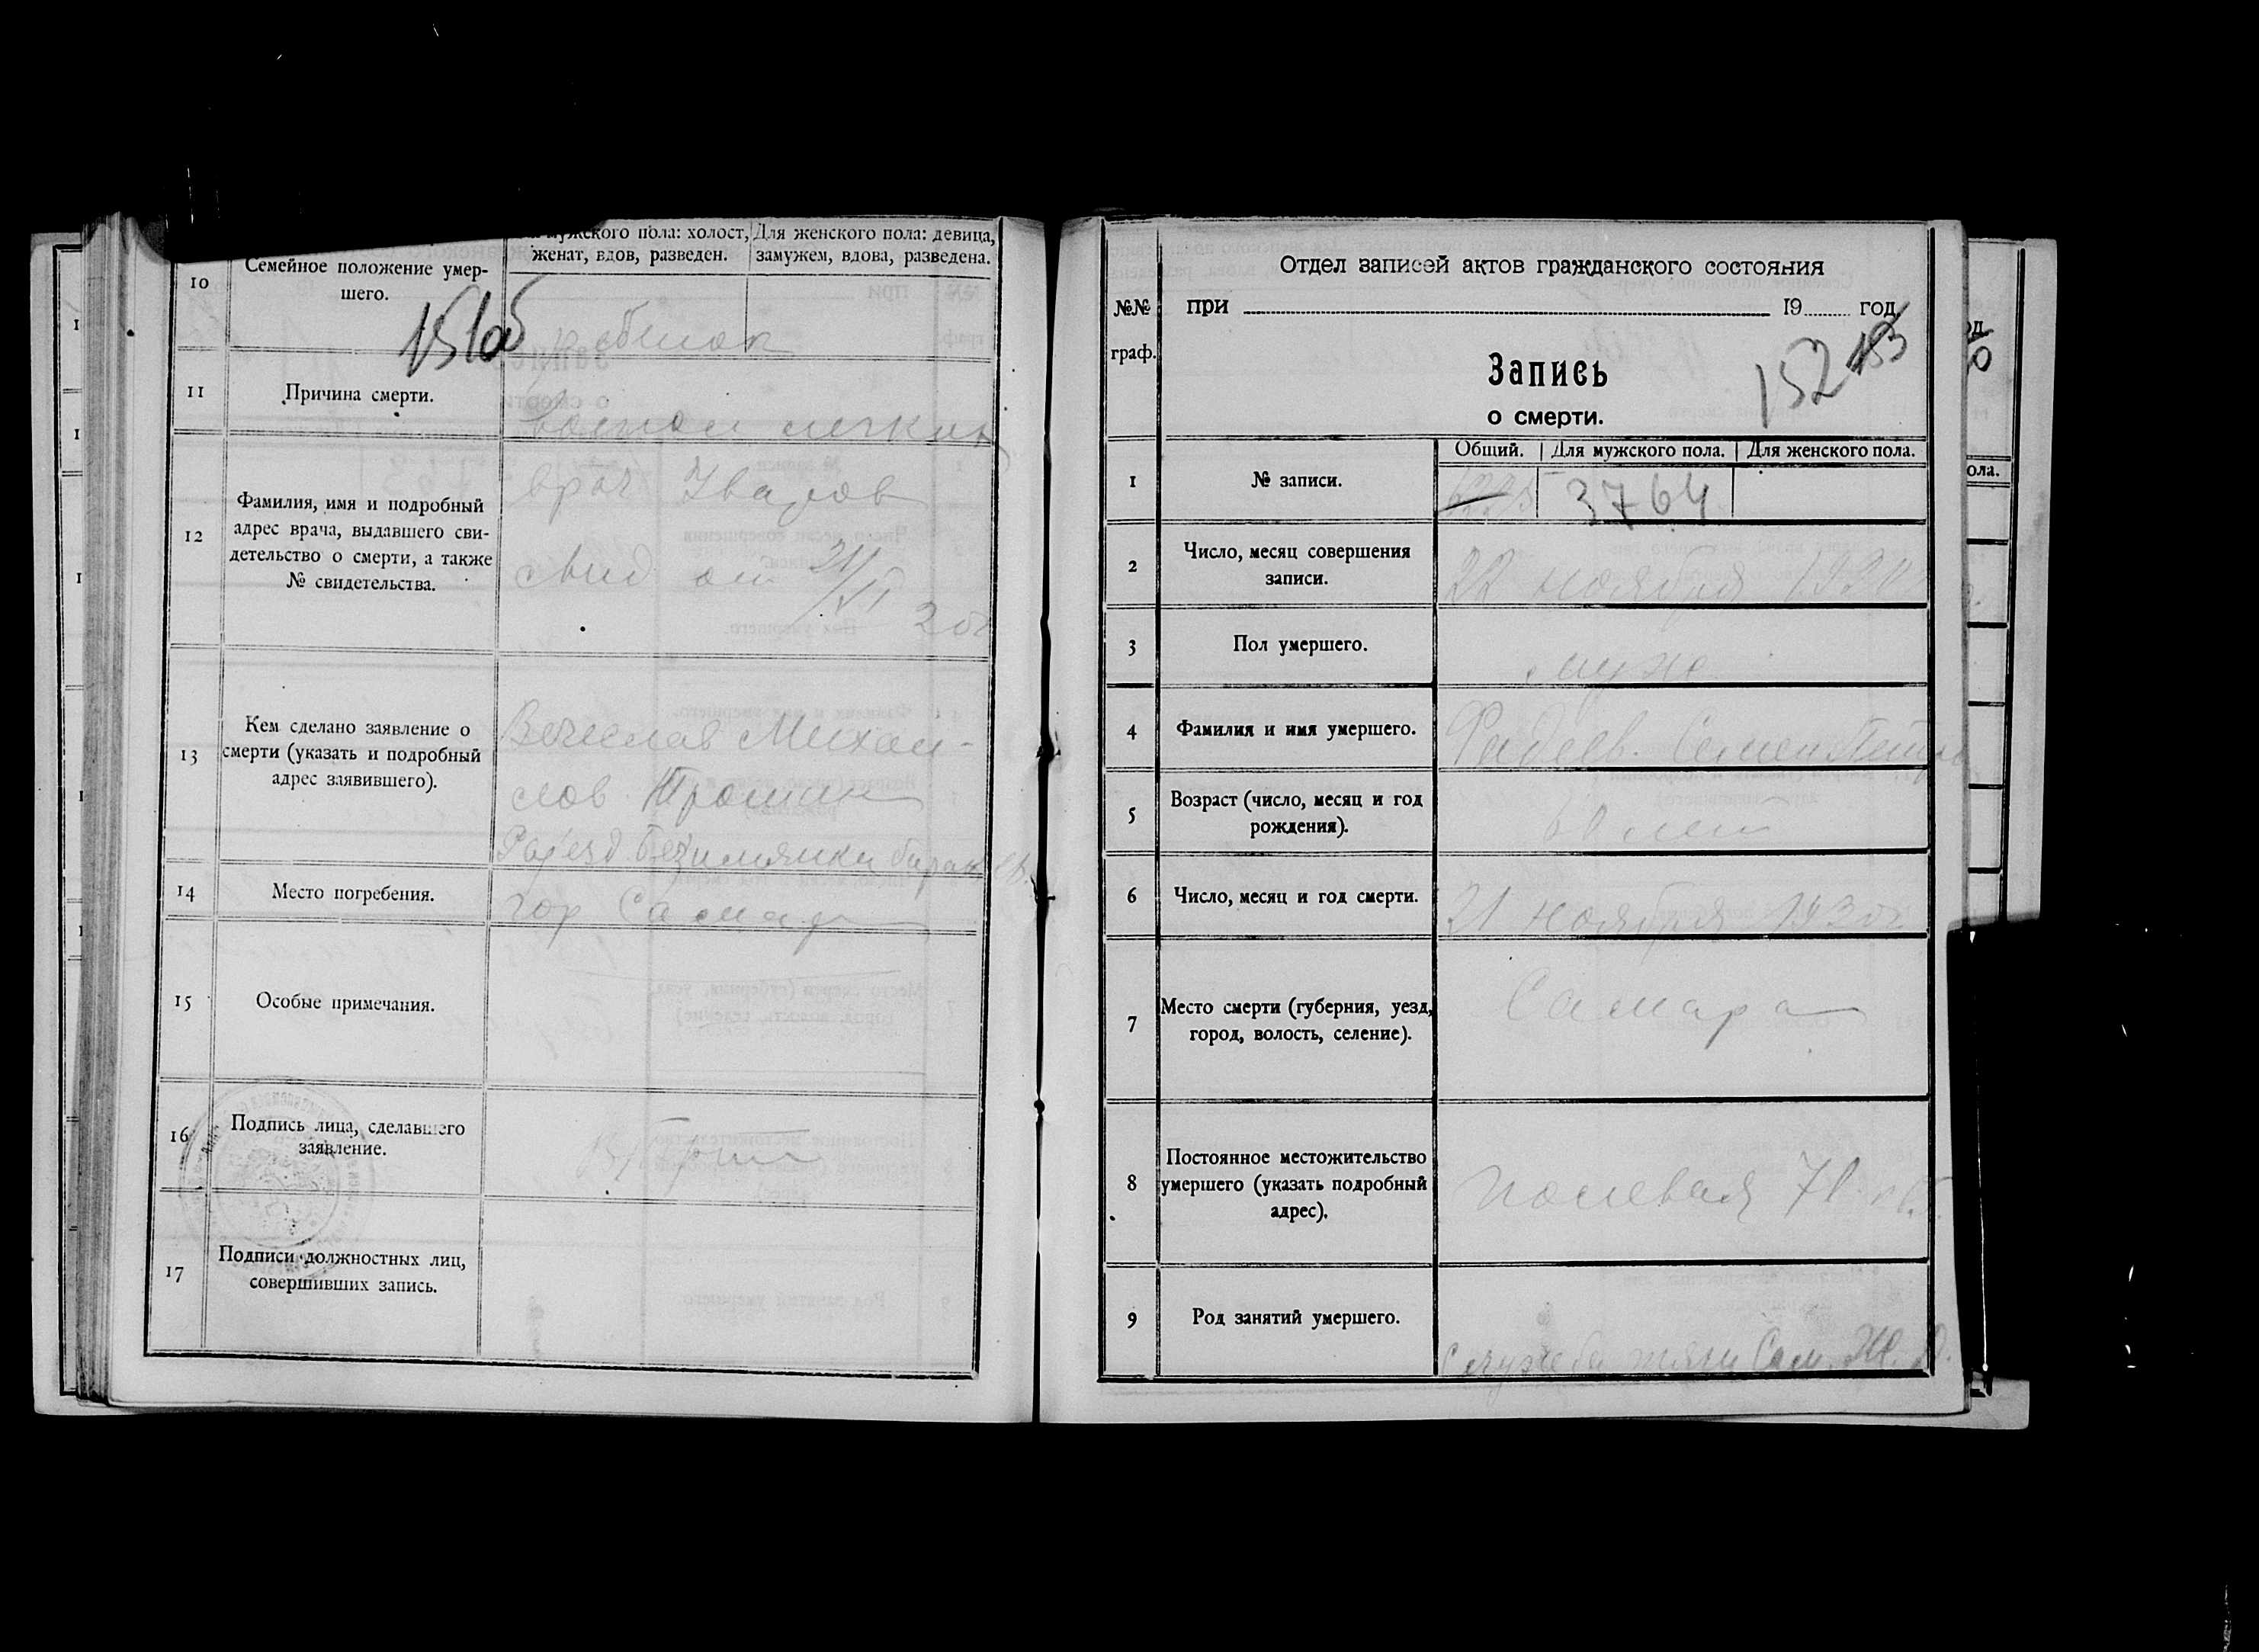 10
Семейное положение умер-
шего.
мужского пола: холост,
женат, вдов, разведен.
Для женского пола: девица,
замужем, вдова, разведена.
151об
ребенок
11
Причина смерти.
12
Фамилия, имя и подробный
адрес врача, выдавшего сви-
детельство о смерти, а также
№ свидетельства.
врач
свид от 21/XI
13
Кем сделано заявление о
смерти (указать и подробный
адрес заявившего).
Вечеслав Михаи-
лов Трошин
Разезд Безимянки барак
14
Место погребения.
гор Самар
15
Особые примечания.
16
Подпись лица, сделавшего
заявление.
17
Подписи должностных лиц,
совершивших запись.
№№
граф.
Отдел записей актов гражданского состояния
при 19 год.
Запись
о смерти.
152 153
1
№ записи.
Общий.
Для мужского пола.
Для женского пола.
3764
2
Число, месяц совершения
записи.
22 ноября
3
Пол умершего.
муж
4
Фамилия и имя умершего.
Фадеев Семен
5
Возраст (число, месяц и год
рождения).
60 лет
6
Число, месяц и год смерти.
21 ноября 1930г
7
Место смерти (губерния, уезд,
город, волость, селение).
Самара
8
Постоянное местожительство
умершего (указать подробный
адрес).
полевая 71
9
Род занятий умершего.
Служба тяги Сам. Ж. Д.